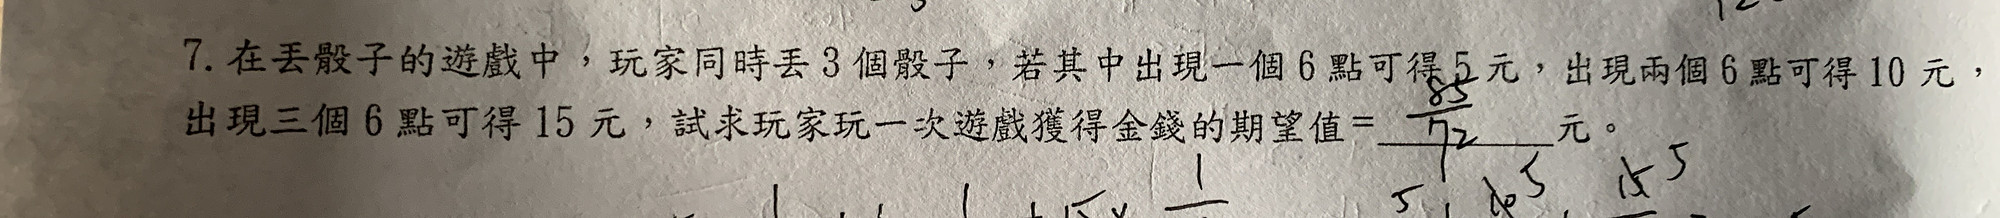 7. 在丟骰子的遊戲中，玩家同時丟 3 個骰子，若其中出現一個 6 點可得 5 元，出現兩個 6 點可得 10 元，
出現三個 6 點可得 15 元，試求玩家玩一次遊戲獲得金錢的期望值= 85/72 元。